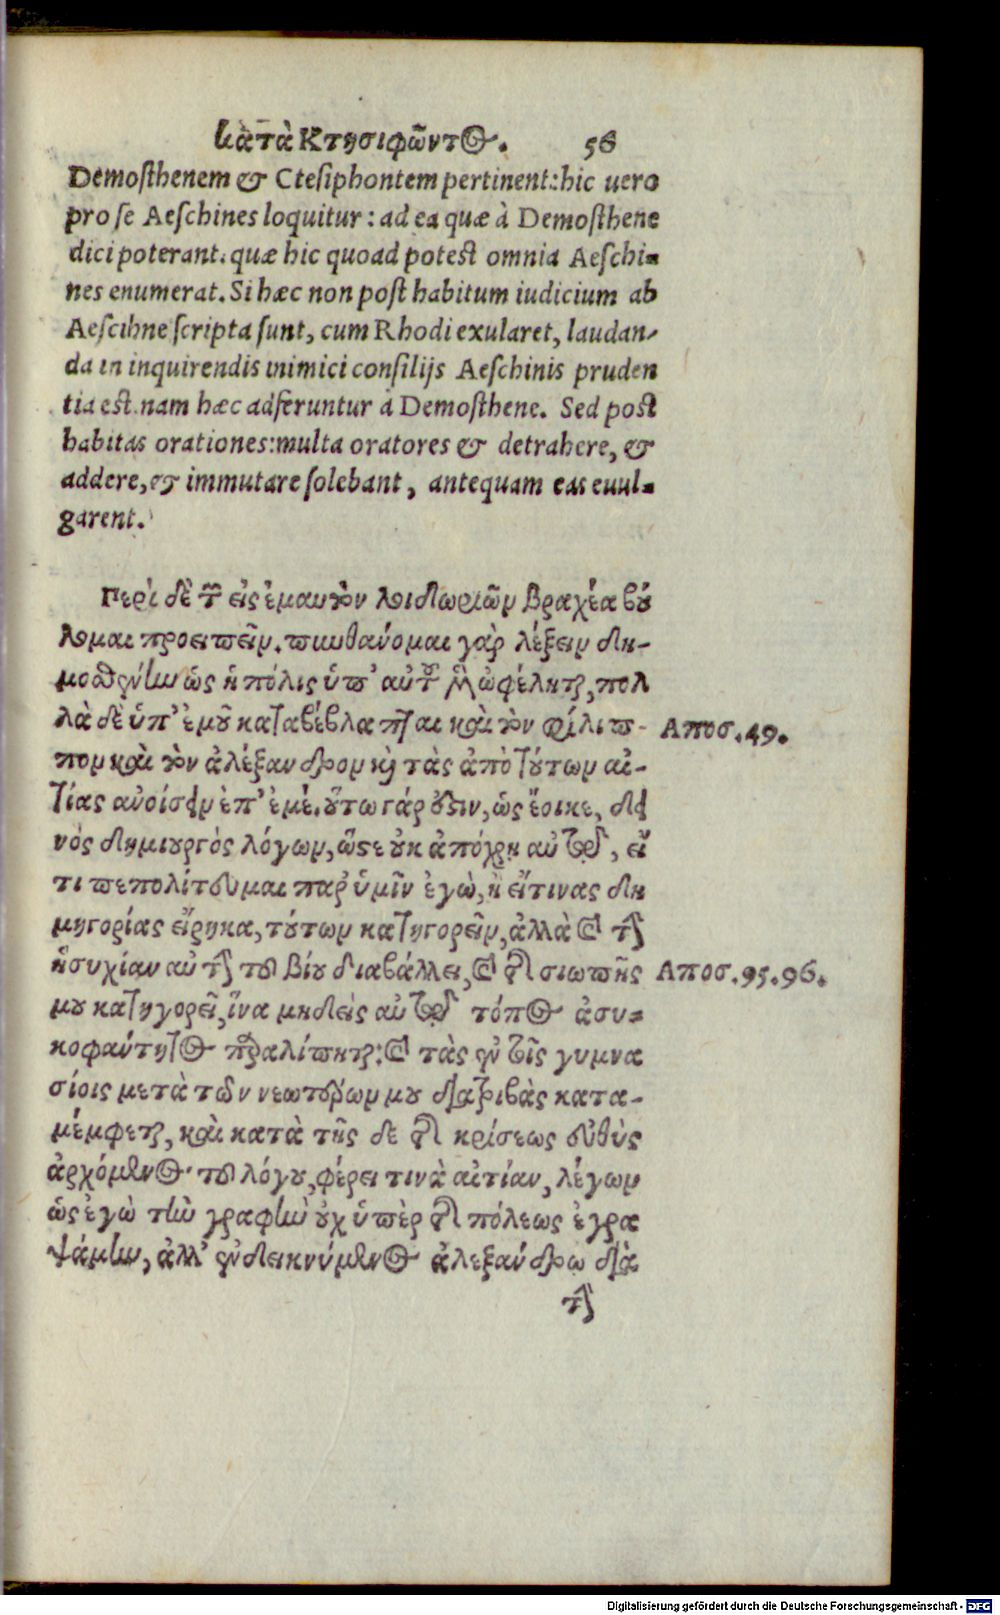 κατὰ Κτησιφῶντος. 56
Demosthenem & Ctesiphontem pertinent: hic uero
pro se Aeschines loquitur: ad ea quæ à Demosthene
dici poterant. quæ hic quoad potest omnia Aeschi=
nes enumerat. Si hæc non post habitum iudicium ab
Aescihne scripta sunt, cum Rhodi exularet, laudan-
da in inquirendis inimici consilijs Aeschinis pruden
tia est. nam hæc adferuntur à Demosthene. Sed post
habitas orationes: multa oratores & detrahere, &
addere, & immutare solebant, antequam eas euul=
garent.
Περὶ δὲ τῶν εἰς ἐμαυτὸν λοιδωριῶν βραχέα βού
λομαι προειπεῖν. πυνθάνομαι γὰρ λέξειν Δη-
μοσθένην ὡς ἡ πόλις ὑπ' αὐτοῦ μὲν ὠφέληται, πολ
λὰ δὲ ὑπ' ἐμοῦ καταβέβλαπται καὶ τὸν φίλιπ-
πον καὶ τὸν ἀλέξανδρον καὶ τὰς ἀπὸ τούτων αἰ-
τίας ἀνοίσειν ἐπ' ἐμέ. οὕτω γάρ ἐστιν, ὡς ἔοικε, δει
νὸς δημιουργὸς λόγων, ὥστε οὐκ ἀπόχρη αὐτῷ, εἴ
τι πεπολίτευμαι παρ' ὑμῖν ἐγὼ, ἢ εἴ τινας δη
μηγορίας εἴρηκα, τούτων κατηγορεῖν, ἀλλὰ καὶ τὴν
ἡσυχίαν αὐτὴν τοῦ βίου διαβάλλει, καὶ τῆς σιωπῆς
μου κατηγορεῖ, ἵνα μηδεὶς αὐτῷ τόπος ἀσυ=
κοφάντητος παραλίπηται: καὶ τὰς ἐν τοῖς γυμνα
σίοις μετὰ τῶν νεωτέρων μου διατριβὰς κατα-
μέμφεται, καὶ κατὰ τῆς δε τῆς κρίσεως εὐθὺς
ἀρχόμενος τοῦ λόγου, φέρει τινὰ αἰτίαν, λέγων
ὡς ἐγὼ τὴν γραφὴν οὐχ ὑπὲρ τῆς πόλεως ἐγρα
ψάμην, ἀλλ' ἐνδεικνύμενος ἀλεξάνδρω διὰ
τὴν
Αποσ. 49.
Αποσ. 95. 96.
Digitalisierung gefördert durch die Deutsche Forschungsgemeinschaft - DFG